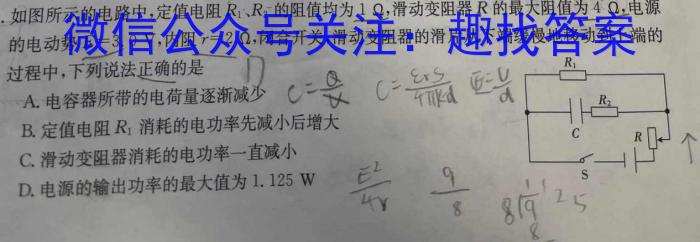 .如图所示的电路中,定值电阻 R₁、R₂ 的阻值均为 1 Ω,滑动变阻器 R 的最大阻值为 4 Ω,电源
的电动势 闭合开关 滑动变阻器的滑片 端缓慢地移动到 端的
微信公众号关注:趣找答案
过程中,下列说法正确的是
D
A. 电容器所带的电荷量逐渐减少
B. 定值电阻 R₁ 消耗的电功率先减小后增大
C. 滑动变阻器消耗的电功率一直减小
D. 电源的输出功率的最大值为 1.125 W
C=Q/U
C=εrS/4πkd
E=U/d
R₁
R₂
C
R
S
E²/4r
9/8